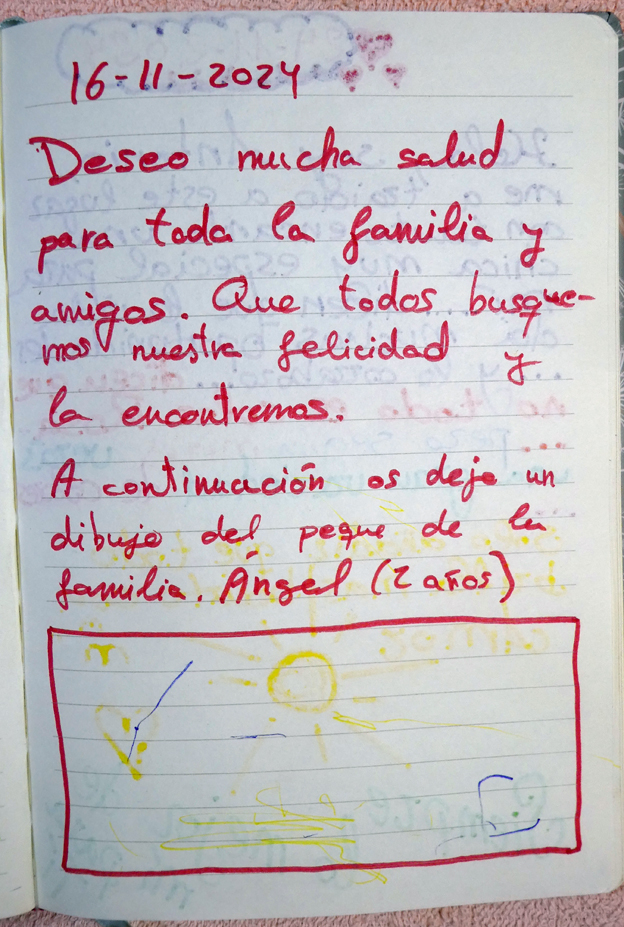 16-11-2024
Deseo mucha salud
para toda la familia y
amigos. Que todos busque-
mos nuestra felicidad y
la encontremos.
A continuación os dejo un
dibujo del peque de la
familia. Ángel (2 años)